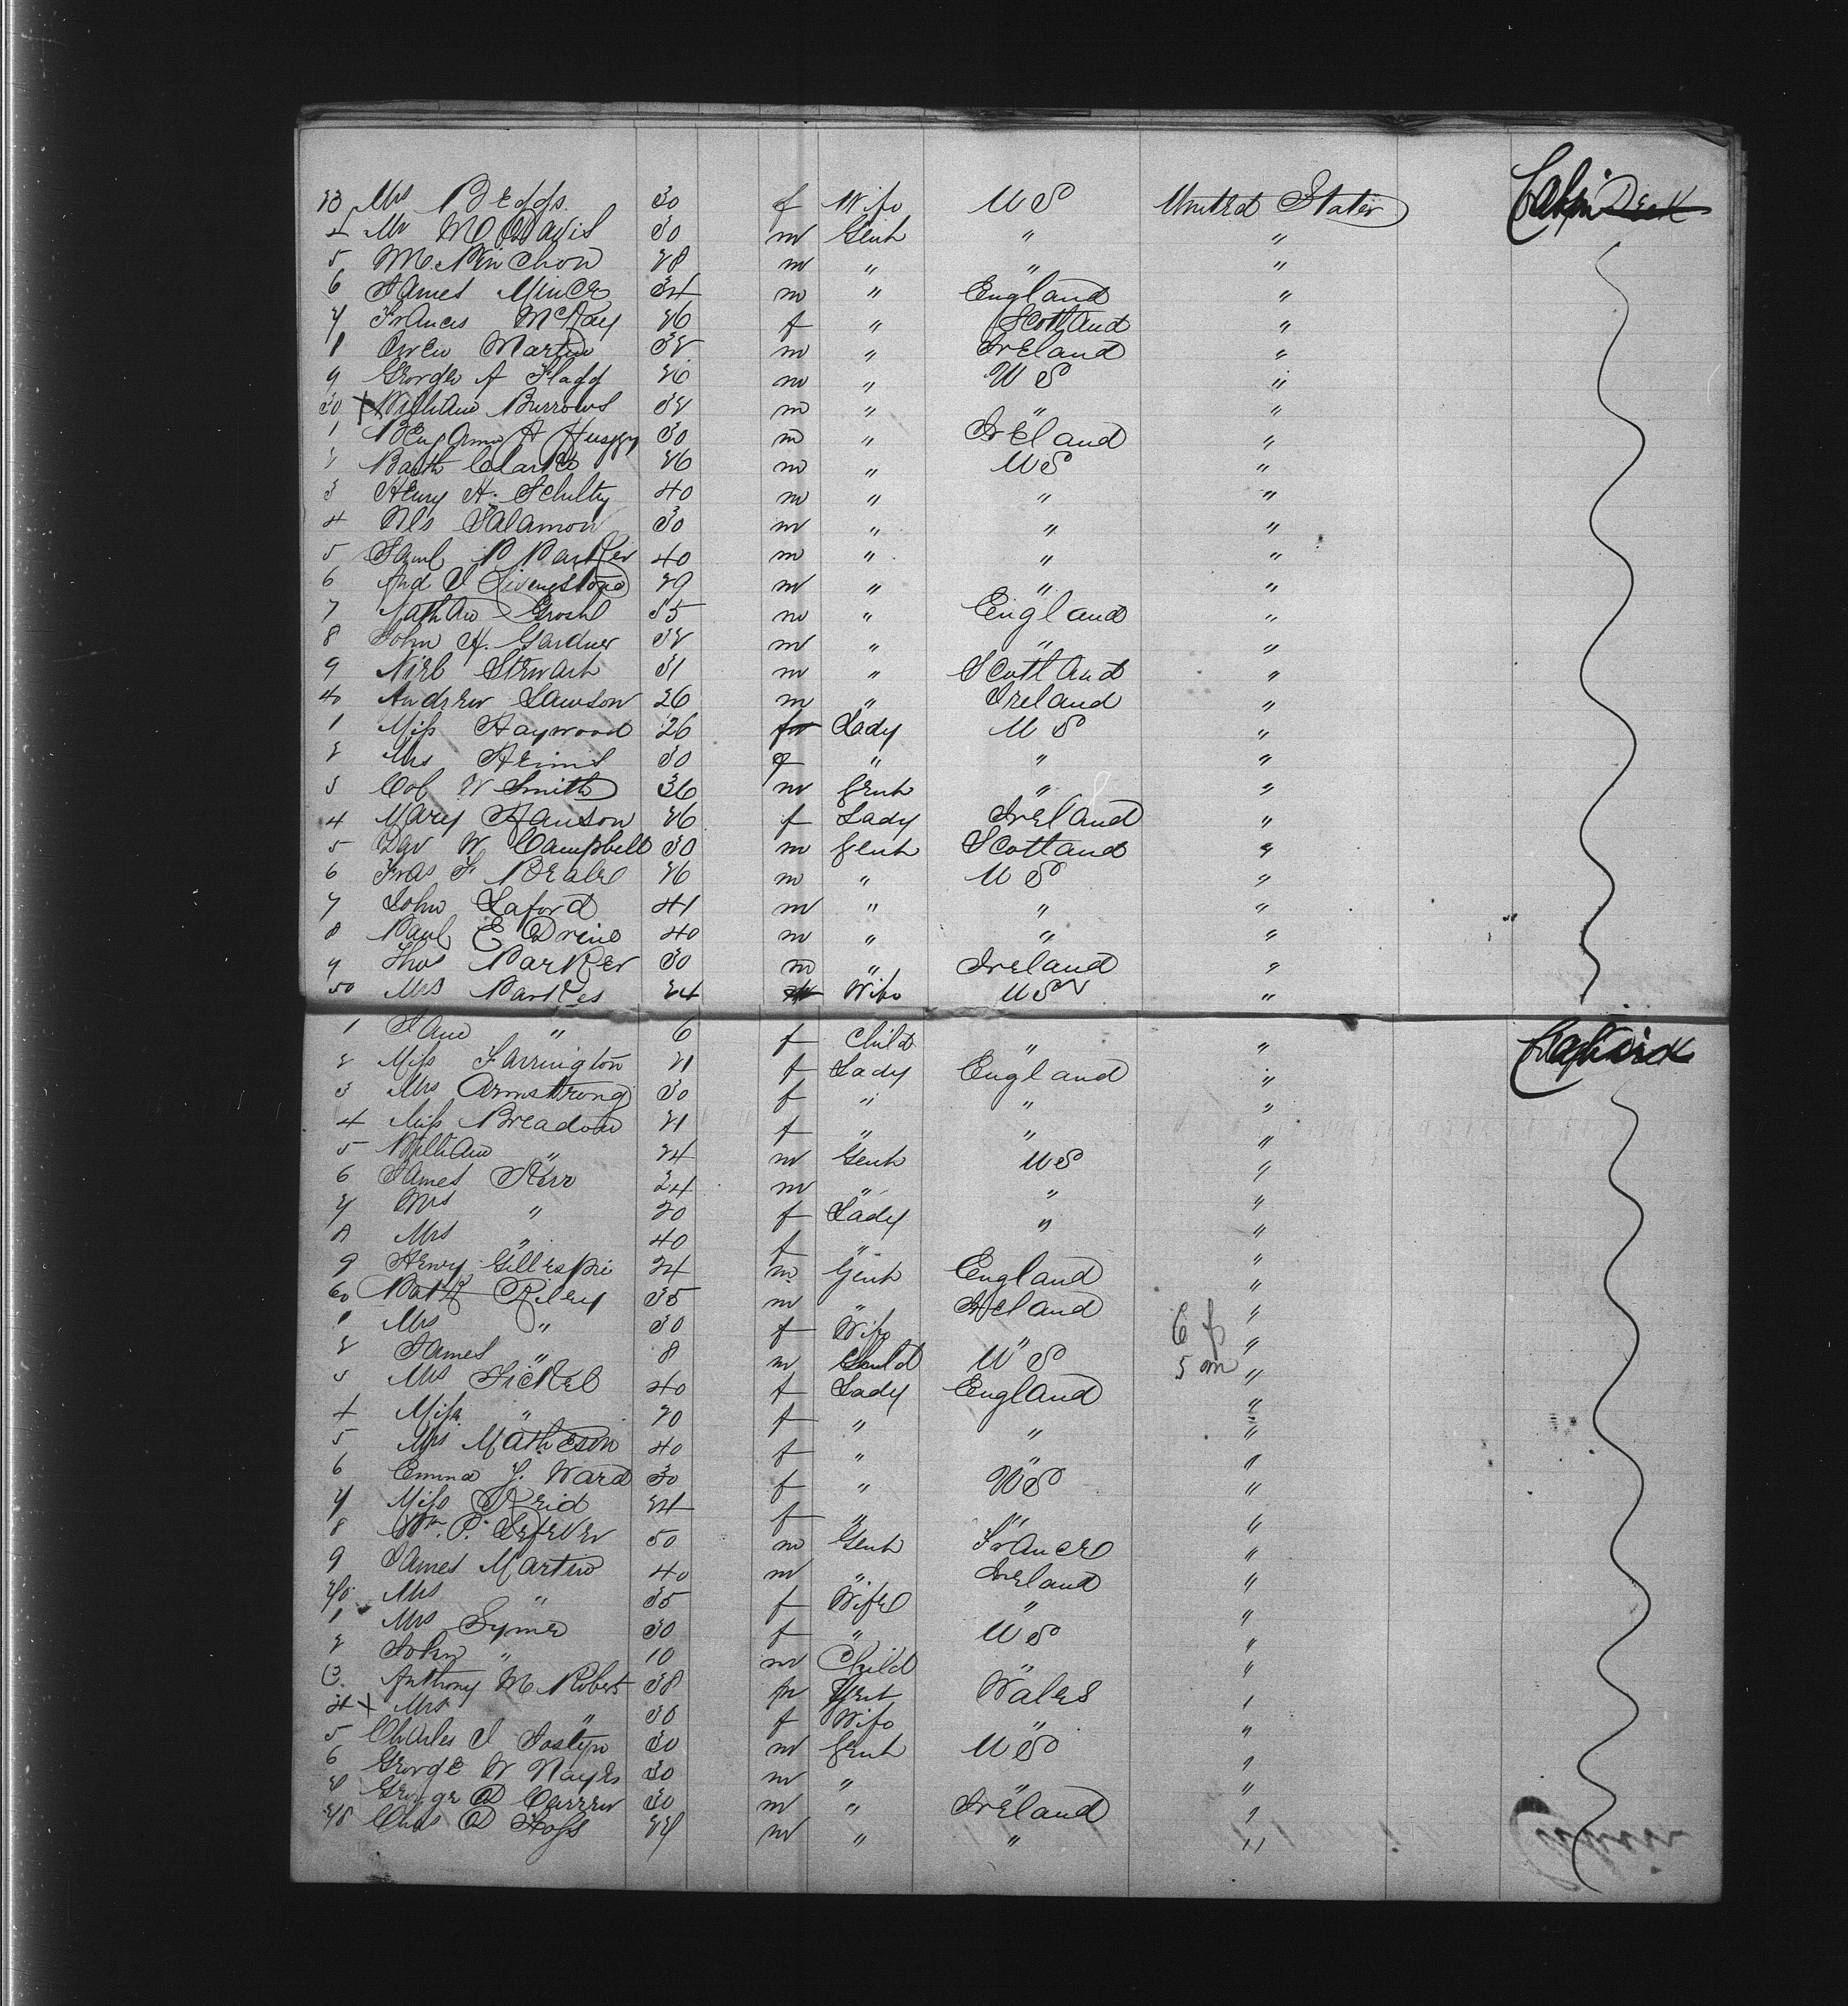 23 Mrs Beggs 30 f Wife U S United States Cabin Deck
4 Mr M Davis 30 m Gent " "
5 28 m " " "
6 James Mince 34 m " England "
7 Frances McKay 26 f " Scotland "
8 Owen Martin 32 m " Ireland "
9 George A Flagg 26 m " U S "
30 x William Burrows 32 m " " "
1 Benjamin A 30 m " Ireland "
2 Barth Clarke 26 m " U S "
3 Henry H. Schulty 40 m " " "
4 Salamon 30 m " " "
5 Saml P Parker 40 m " " "
6 And J Livingstone 29 m " " "
7 Nathan 35 m " England "
8 John H. Gardner 32 m " " "
9 Niel Stewart 31 m " Scotland "
40 Andrew Lawson 26 m " Ireland "
1 Miss Haywood 26 f Lady U S "
2 Mrs Heims 30 f " " "
3 Col W Smith 36 m Gent " "
4 Mary Hanson 26 f Lady Ireland "
5 Dav W Campbell 30 m Gent Scotland "
6 Fras F Beale 26 m " U S "
7 John Laford 41 m " " "
8 Paul E 40 m " " "
9 Thos Parker 30 m " Ireland "
50 Mrs Parkes 24 Wife U S "
1 Jane " 6 f Child " "
2 Miss Farrington 21 f Lady England "
3 Mrs Armstrong 30 f " " "
4 Miss Breadon 21 f " " "
5 William " 24 m Gent U S "
6 James Kerr 24 m " " "
7 Mrs " 20 f Lady " "
8 Mrs " 40 f " "
9 Henry Gillespie 24 m Gent England "
60 Patk Riley 35 m " Ireland "
1 Mrs " 30 f Wife " 6 f "
2 James " 8 m Child U S 5 m "
3 Mrs Fickel 40 f Lady England "
4 Miss " 20 f " " "
5 Mrs Matheson 40 f " "
6 Emma J. Ward 30 f " U S "
7 Miss Reid 24 f " " "
8 Wm P. Lefever 50 m Gent France "
9 James Martin 40 m " Ireland "
70 Mrs " 35 f Wife " "
1 Mrs Syme 30 f " U S "
2 John " 10 m Child " "
3 Anthony M Robert 38 m Gent Wales "
4 x Mrs " 30 f Wife " "
5 Charles J Joslyn 30 m Gent U S "
6 George W Nayes 30 m " " "
7 George D Carrew 30 m " Ireland "
78 Chas D m " " "